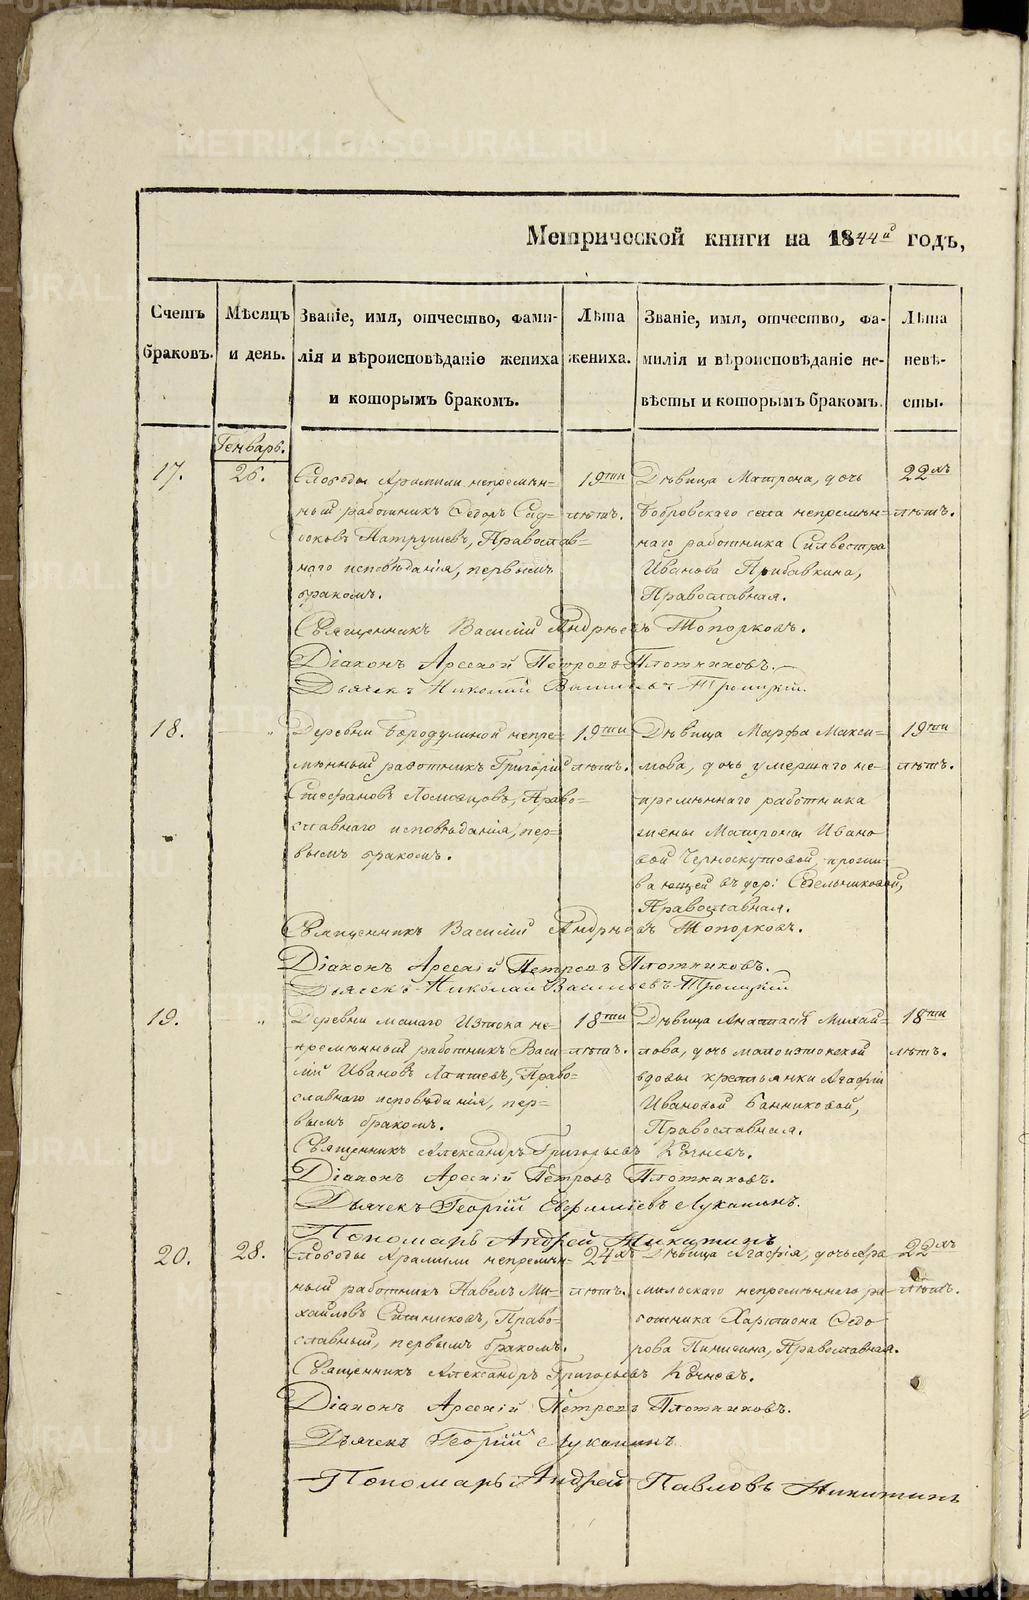 METRIKI.GASO-URAL.RU
Метрической книги на 1844й годъ,
Счетъ браковъ.
Мѣсяцъ и день.
Званіе, имя, отчество, фами-
лія и вѣроисповѣданіе жениха
и которымъ бракомъ.
Лѣта жениха.
Званіе, имя, отчество, фа-
милія и вѣроисповѣданіе не-
вѣсты и которымъ бракомъ.
Лѣта невѣ-
сты.
Генварь.
17.
26.
Слободы Арамили непремѣн=
ный работникъ Ѳедоръ
Патрушевъ, Православ=
наго исповѣданія, первымъ
бракомъ.
19ти
лѣтъ.
Дѣвица Матрона, дочь
Бобровскаго села непремѣн=
наго работника Сильвестра
Иванова Прибавкина,
Православная.
22лъ
лѣтъ.
Священникъ Василій Андрѣевъ Топорковъ.
Діаконъ Арсеній Петровъ Плотниковъ.
Дьячекъ Николай Васильевъ Троицкій.
18.
"
Деревни Бородулиной непре=
мѣнный работникъ Григорій
Стефановъ Ломовцовъ, Право=
славнаго исповѣданія, пер=
вымъ бракомъ.
19ти
лѣтъ.
Дѣвица Марфа Макси=
мова, дочь умершаго не=
премѣннаго работника
жены Матроны Ивано
вой Черноскутовой, прожи=
вающей въ дер: Седельниковой,
Православная.
19ти
лѣтъ.
Священникъ Василій Андрѣевъ Топорковъ.
Діаконъ Арсеній Петровъ Плотниковъ.
Дьячекъ Николай Васильевъ Троицкій
19.
"
Деревни малаго Истока не=
премѣнный работникъ Васи
лій Ивановъ Лаптевъ, Право=
славнаго исповѣданія, пер=
вымъ бракомъ.
18ти
лѣтъ.
Дѣвица Анастасія Михай=
лова, дочь малоистокской
вдовы крестьянки Агафіи
Ивановой Банниковой,
Православная.
18ти
лѣтъ.
Священникъ Александръ Григорьевъ Кочневъ.
Діаконъ Арсеній Петровъ Плотниковъ.
Дьячекъ Георгій Евфиміевъ Лукашинъ.
Пономарь Андрей Никитинъ
20.
28.
Слободы Арамили непремѣн=
ный работникъ Павелъ Ми=
хайловъ Ситниковъ, Право=
славный, первымъ бракомъ.
24лъ
лѣтъ.
Дѣвица Агафія, дочь Ара
мильскаго непремѣннаго ра
ботника Харитона Ѳедо
рова Пинигина, Православная.
22лъ
лѣтъ.
Священникъ Александръ Григорьевъ Кочневъ.
Діаконъ Арсеній Петровъ Плотниковъ.
Дьячекъ Георгій Лукашинъ
Пономарь Андрей Павловъ Никитинъ